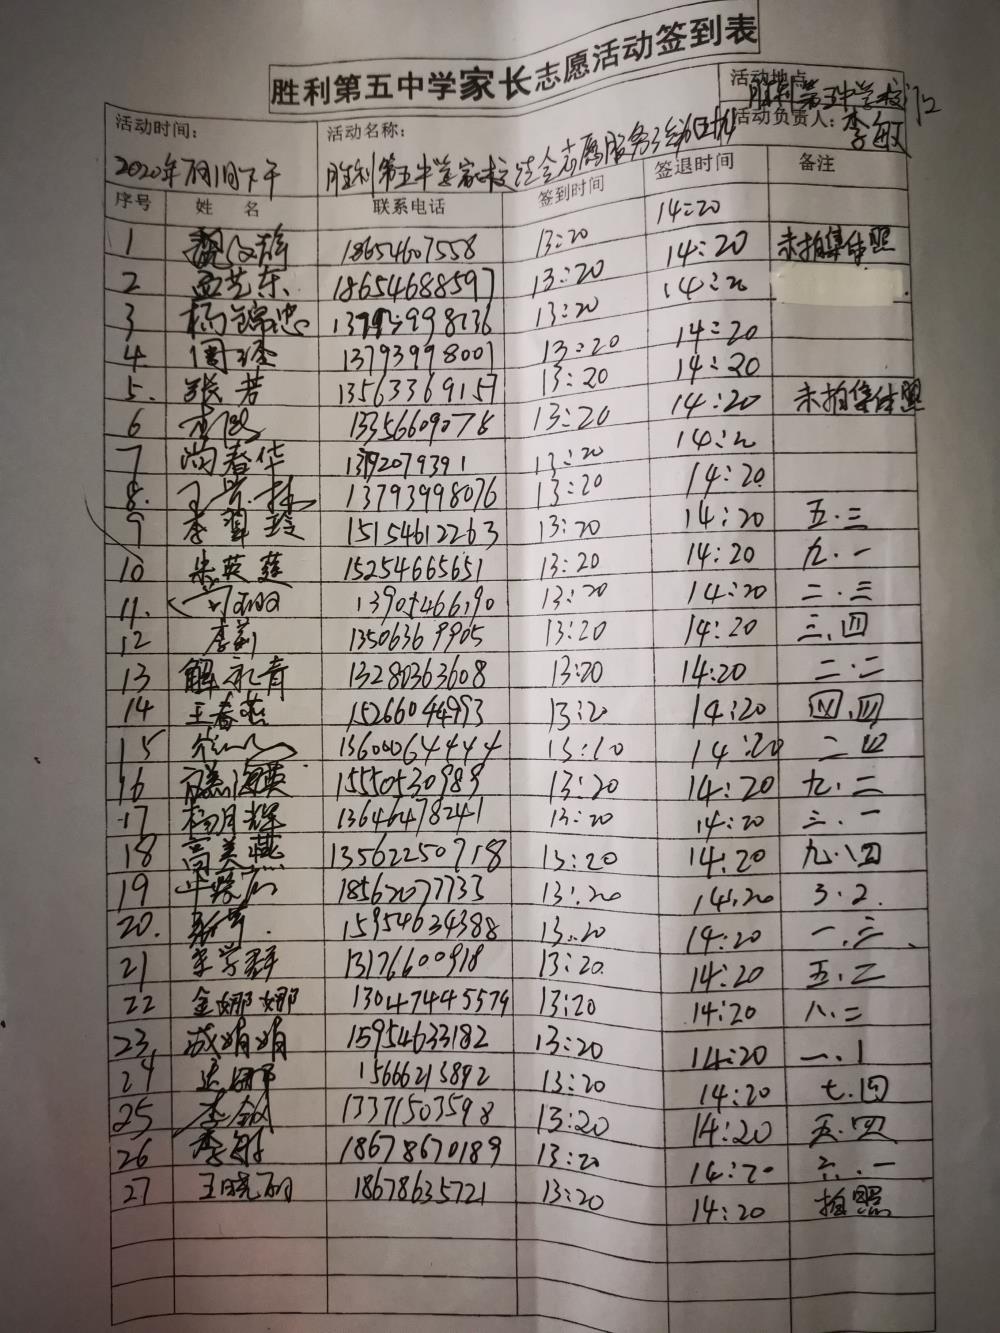 胜利第五中学家长志愿活动签到表
活动时间: 活动名称: 活动地点 胜利第五中学校门口
活动负责人: 李敏
2020年 月1日下午 胜利第五中学家校 会志愿服务活动
序号 姓名 联系电话 签到时间 签退时间 备注
14:20
1 18654607558 13:20 14:20 未拍集体照
2 孟芝东 18654688597 13:20 14:20
3 杨锦忠 13:20
4. 周 13793998007 13:20 14:20
5. 张芳 13563369157 13:20 14:20
6 李敏 13356609078 13:20 14:20 未拍集体照
7 尚春华 1392079391 13:20 14:20
8. 13793998076 13:20 14:20
9 李翠玲 15154612263 13:20 14:20 五.三
10 朱英莲 15254665651 13:20 14:20 九.一
11. 13905466190 13:20 14:20 二.三
12 李莉 13506369905 13:20 14:20 三.四
13 解永青 13280363608 13:20 14:20 二.二
14 王春燕 15266044993 13:20 14:20 四.四
15 13600064444 13:20 14:20 二四
16 海英 15550530989 13:20 14:20 九.二
17 杨月辉 13646478241 13:20 14:20 三.一
18 高美燕 13562250718 13:20 14:20 九.八四
19 18562077733 13:20 14:20 3.2.
20. 15954634388 13:20 14:20 一.三
21 宋学群 13176600918 13:20. 14:20 五.二
22 金娜娜 13047445579 13:20 14:20 八.二
23. 成娟娟 15954633182 13:20 14:20 一.1
24 娜 15666213892 13:20 14:20 七.四
25 13371503598 13:20 14:20 五.四
26 李敏 18678670189 13:20 14:20 六.一
27 王晓丽 18678635721 13:20 14:20 拍照